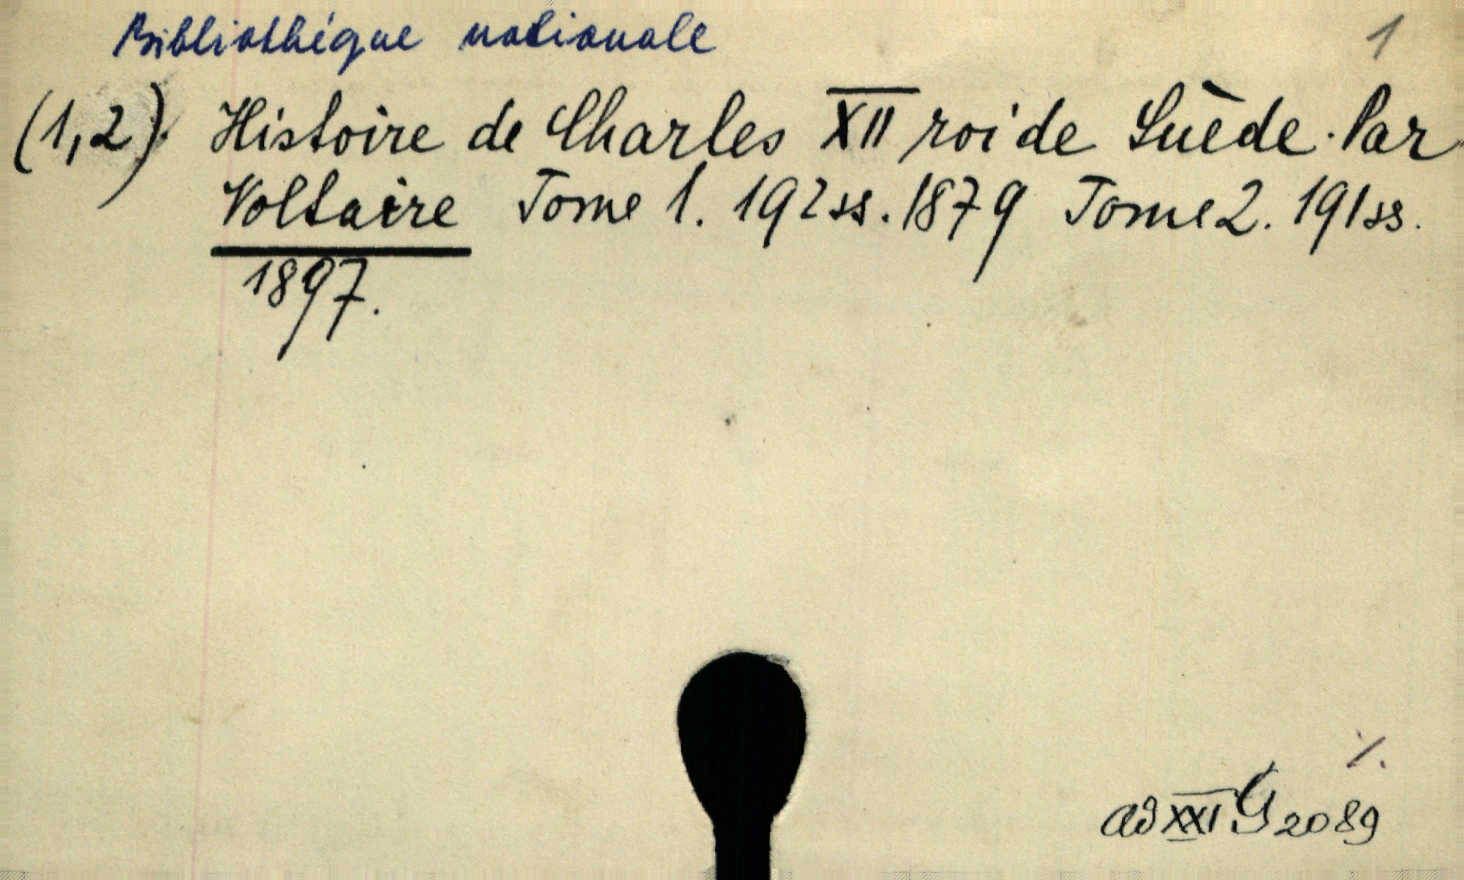 Bibliothéque nationale 1
(1,2). Histoire de Charles XII roi de Suède. Par
Voltaire Tome 1. 192 ss. 1879 Tome 2. 191 ss.
1897.
ad XXI G 2089